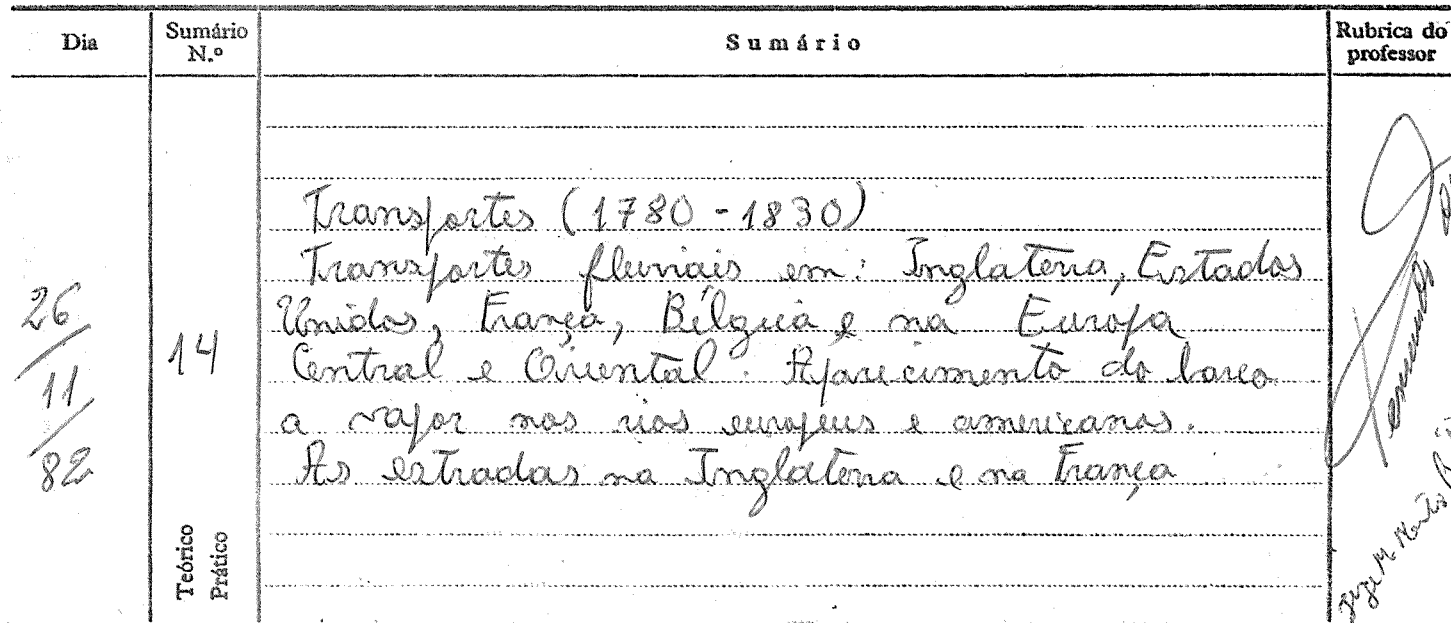 Dia
Sumário N.º
Sumário
Rubrica do professor
Transportes (1780-1830)
Transportes fluviais em: Inglaterra, Estados
Unidos, França, Bélgica e na Europa
Central e Oriental. Aparecimento do barco
a vapor nos rios europeus e americanos.
As estradas na Inglaterra e na França
26/11/82
14
Teórico
Prático